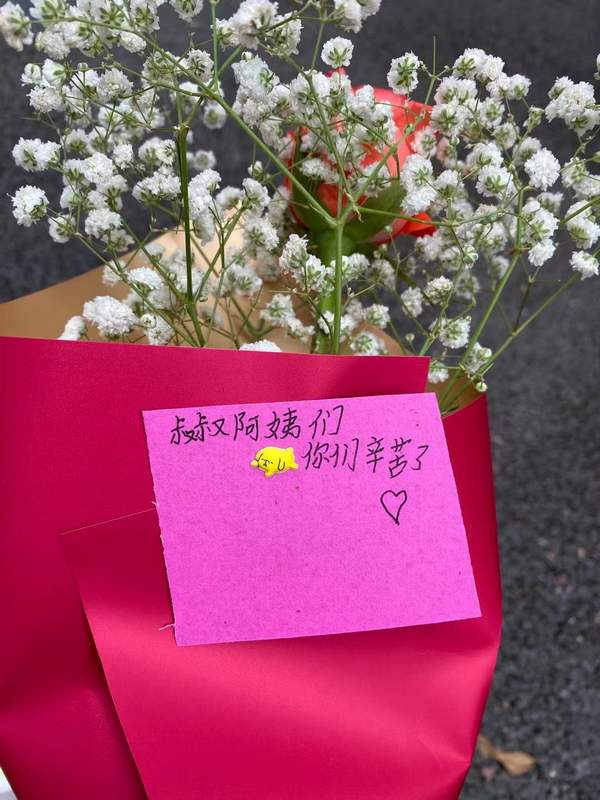 叔叔阿姨们
你们辛苦了